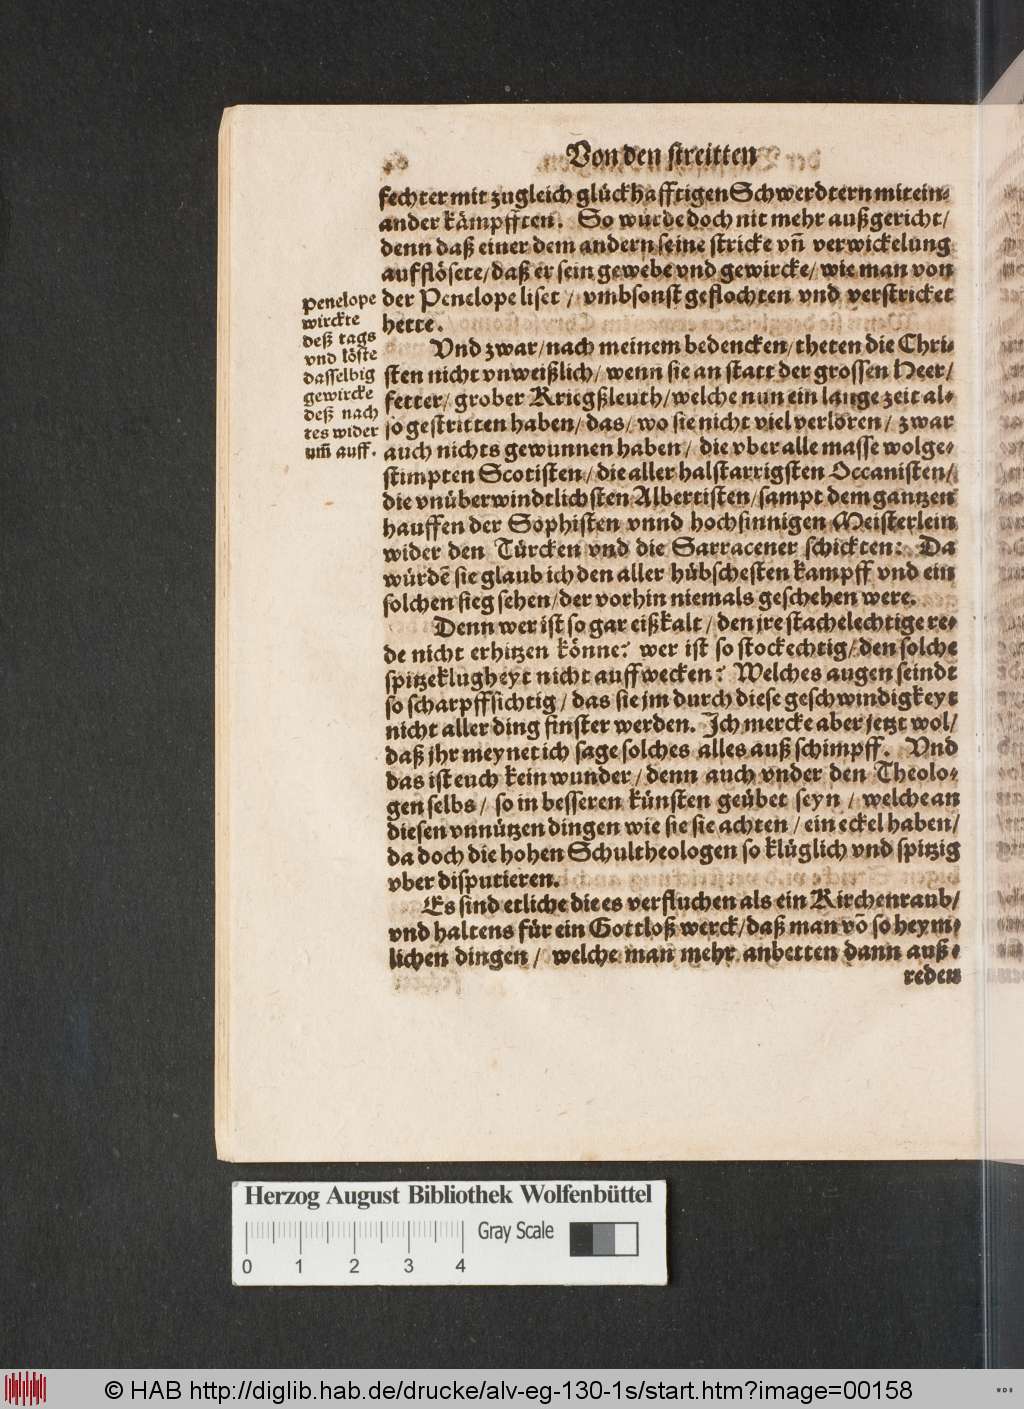 Von den streitten
fechter mit zugleich glückhafftigen Schwerdtern mitein⸗
ander kämpfften. So würde doch nit mehr außgericht/
denn daß einer dem andern seine stricke vñ verwickelung
aufflösete/ daß er sein gewebe vnd gewircke/ wie man von
der Penelope liset / vmbsonst geflochten vnd verstricket
hette.
Penelope
wirckte
deß tags
vnd löste
dasselbig
gewircke
deß nach
tes wider
um̃ auff.
Vnd zwar/ nach meinem bedencken/ theten die Chri⸗
sten nicht vnweißlich/ wenn sie an statt der grossen Heer/
fetter/ grober Kriegßleuth/ welche nun ein lange zeit al⸗
so gestritten haben/ das/ wo sie nicht viel verloren/ zwar
auch nichts gewunnen haben/ die vber alle masse wolge⸗
stimpten Scotisten/ die aller halstarrigsten Occanisten/
die vnüberwindtlichsten Albertisten/ sampt dem gantzen
hauffen der Sophisten vnnd hochsinnigen Meisterlein
wider den Türcken vnd die Sarracener schickten: Da
würdẽ sie glaub ich den aller hübschesten kampff vnd ein
solchen sieg sehen/ der vorhin niemals geschehen were.
Denn wer ist so gar eißkalt/ den jre stachelechtige re⸗
de nicht erhitzen könne? wer ist so stockechtig/ den solche
spitzeklugheyt nicht auffwecken? Welches augen seindt
so scharpffsichtig / das sie jm durch diese geschwindigkeyt
nicht aller ding finster werden. Ich mercke aber jetzt wol/
daß jhr meynet ich sage solches alles auß schimpff. Vnd
das ist euch kein wunder/ denn auch vnder den Theolo⸗
gen selbs/ so in besseren künsten geübet seyn / welche an
diesen vnnützen dingen wie sie sie achten / ein eckel haben/
da doch die hohen Schultheologen so klüglich vnd spitzig
vber disputieren.
Es sind etliche die es verfluchen als ein Kirchenraub/
vnd haltens für ein Gottloß werck/ daß man võ so heym⸗
lichen dingen / welche man mehr anbetten dann auß⸗
reden
Herzog August Bibliothek Wolfenbüttel
Gray Scale
0 1 2 3 4
© HAB http://diglib.hab.de/drucke/alv-eg-130-1s/start.htm?image=00158